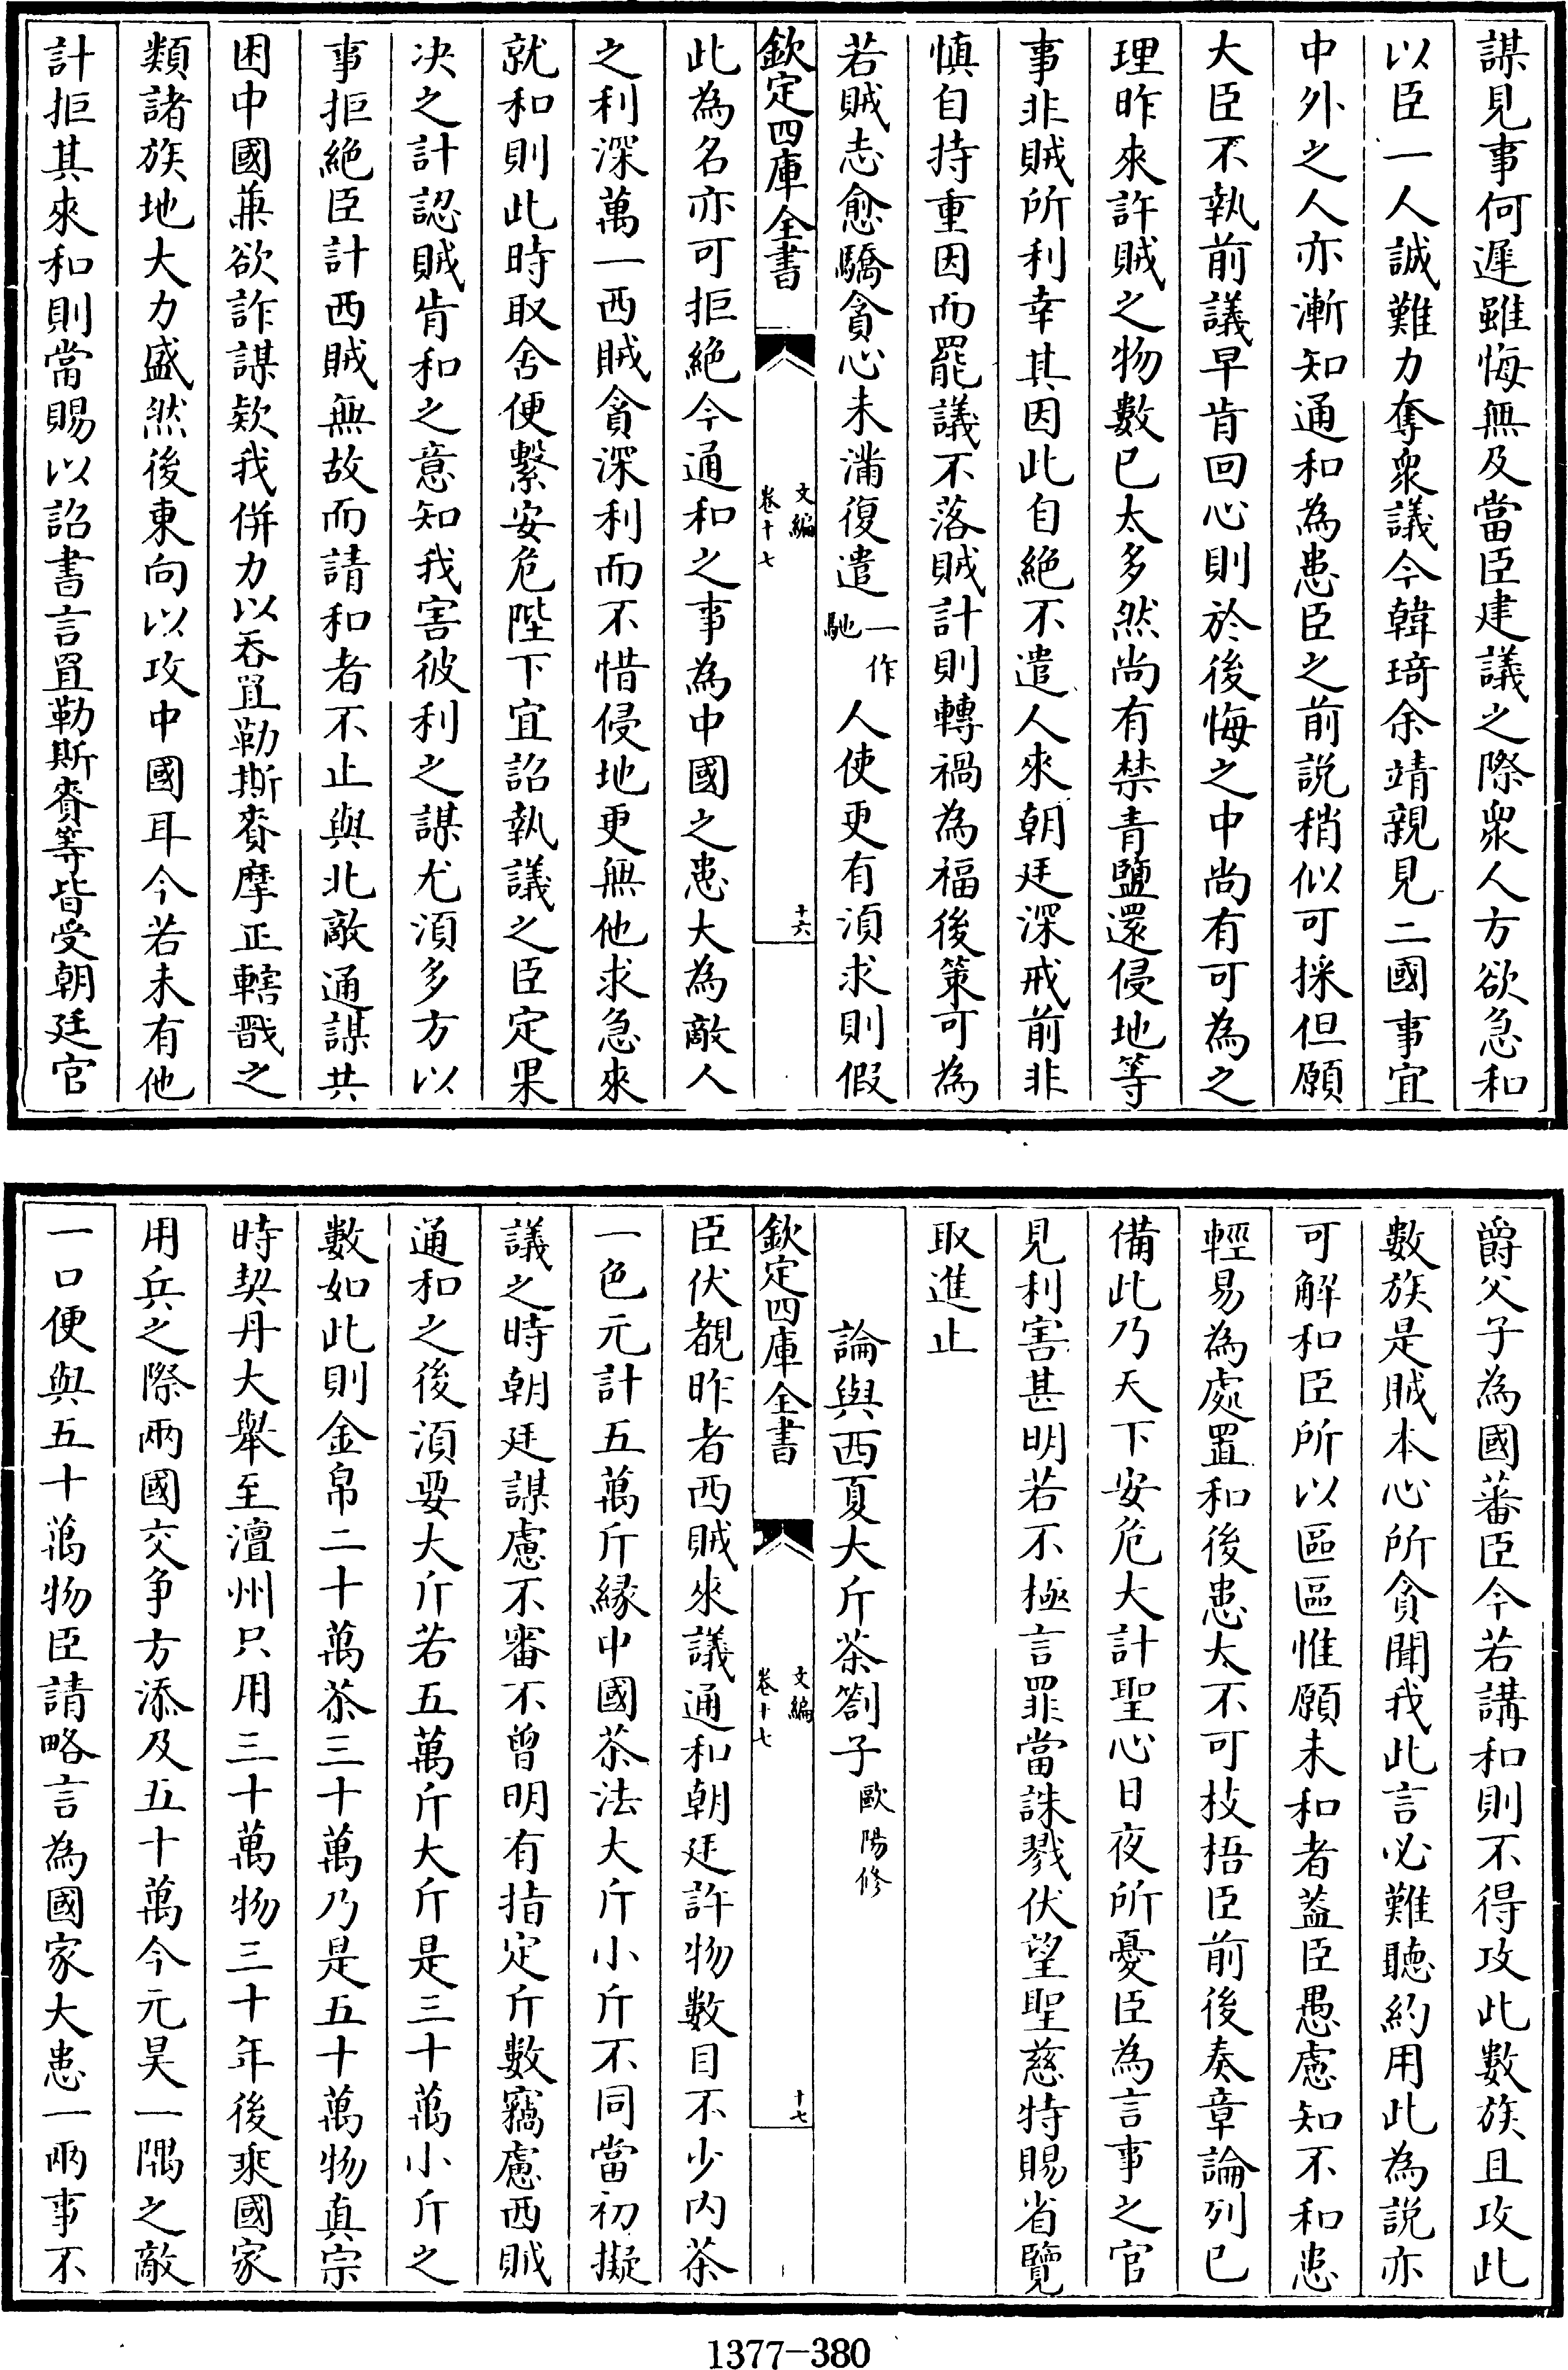 謀見事何遲雖悔無及當臣建議之際衆人方欲急和
以臣一人誠難力奪衆議今韓琦余靖親見二國事宜
中外之人亦漸知通和為患臣之前說稍似可採但願
大臣不執前議早肯回心則於後悔之中尚有可為之
理昨來許賊之物數已太多然尚有禁青鹽還侵地等
事非賊所利幸其因此自絶不遣人來朝廷深戒前非
慎自持重因而罷議不落賊計則轉禍為福後策可為
若賊志愈驕貪心未滿復遣一作馳人使更有湏求則假
欽定四庫全書
文編
卷十七
十六
此為名亦可拒絶今通和之事為中國之患大為敵人
之利深萬一西賊貪深利而不惜侵地更無他求急來
就和則此時取舍便繫安危陛下宜詔執議之臣定果
决之計認賊肯和之意知我害彼利之謀尤湏多方以
事拒絶臣計西賊無故而請和者不止與北敵通謀共
困中國兼欲詐謀欵我併力以吞罝勒斯賚摩正轄戩之
類諸族地大力盛然後東向以攻中國耳今若未有他
計拒其來和則當賜以詔書言罝勒斯賚等皆受朝廷官
爵父子為國蕃臣今若講和則不得攻此數族且攻此
數族是賊本心所貪聞我此言必難聽約用此為說亦
可解和臣所以區區惟願未和者蓋臣愚慮知不和患
輕易為處置和後患大不可枝梧臣前後奏章論列已
備此乃天下安危大計聖心日夜所憂臣為言事之官
見利害甚明若不極言罪當誅戮伏望聖慈特賜省覽
取進止
論與西夏大斤茶劄子歐陽修
欽定四庫全書
文編
卷十七
十七
臣伏覩昨者西賊來議通和朝廷許物數目不少内茶
一色元計五萬斤縁中國茶法大斤小斤不同當初擬
議之時朝廷謀慮不審不曾明有指定斤數竊慮西賊
通和之後湏要大斤若五萬斤大斤是三十萬小斤之
數如此則金帛二十萬茶三十萬乃是五十萬物真宗
時契丹大舉至澶州只用三十萬物三十年後乘國家
用兵之際兩國交爭方添及五十萬今元昊一隅之敵
一口便與五十萬物臣請略言為國家大患一兩事不
1377—380